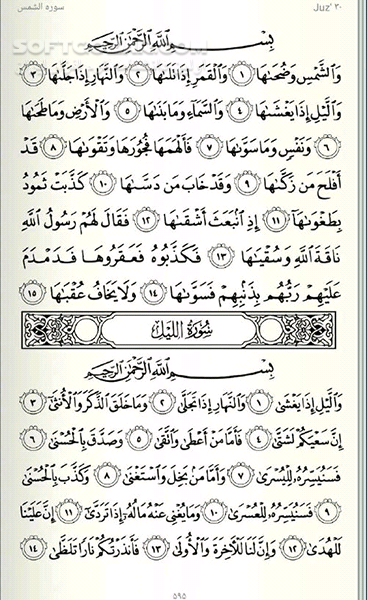 سورة الشمس Juz' ٣٠
SOFTGOZAR.COM
بِسْمِ اللَّهِ الرَّحْمَٰنِ الرَّحِيمِ
وَالشَّمْسِ وَضُحَاهَا ١ وَالْقَمَرِ إِذَا تَلَاهَا ٢ وَالنَّهَارِ إِذَا جَلَّاهَا ٣
وَاللَّيْلِ إِذَا يَغْشَاهَا ٤ وَالسَّمَاءِ وَمَا بَنَاهَا ٥ وَالْأَرْضِ وَمَا طَحَاهَا
٦ وَنَفْسٍ وَمَا سَوَّاهَا ٧ فَأَلْهَمَهَا فُجُورَهَا وَتَقْوَاهَا ٨ قَدْ
أَفْلَحَ مَن زَكَّاهَا ٩ وَقَدْ خَابَ مَن دَسَّاهَا ١٠ كَذَّبَتْ ثَمُودُ
بِطَغْوَاهَا ١١ إِذِ انبَعَثَ أَشْقَاهَا ١٢ فَقَالَ لَهُمْ رَسُولُ اللَّهِ
نَاقَةَ اللَّهِ وَسُقْيَاهَا ١٣ فَكَذَّبُوهُ فَعَقَرُوهَا فَدَمْدَمَ
عَلَيْهِمْ رَبُّهُم بِذَنبِهِمْ فَسَوَّاهَا ١٤ وَلَا يَخَافُ عُقْبَاهَا ١٥
سُورَةُ اللَّيْلِ
بِسْمِ اللَّهِ الرَّحْمَٰنِ الرَّحِيمِ
وَاللَّيْلِ إِذَا يَغْشَىٰ ١ وَالنَّهَارِ إِذَا تَجَلَّىٰ ٢ وَمَا خَلَقَ الذَّكَرَ وَالْأُنثَىٰ ٣
إِنَّ سَعْيَكُمْ لَشَتَّىٰ ٤ فَأَمَّا مَنْ أَعْطَىٰ وَاتَّقَىٰ ٥ وَصَدَّقَ بِالْحُسْنَىٰ ٦
فَسَنُيَسِّرُهُ لِلْيُسْرَىٰ ٧ وَأَمَّا مَن بَخِلَ وَاسْتَغْنَىٰ ٨ وَكَذَّبَ بِالْحُسْنَىٰ
٩ فَسَنُيَسِّرُهُ لِلْعُسْرَىٰ ١٠ وَمَا يُغْنِي عَنْهُ مَالُهُ إِذَا تَرَدَّىٰ ١١ إِنَّ عَلَيْنَا
لَلْهُدَىٰ ١٢ وَإِنَّ لَنَا لَلْآخِرَةَ وَالْأُولَىٰ ١٣ فَأَنذَرْتُكُمْ نَارًا تَلَظَّىٰ ١٤
٥٩٥